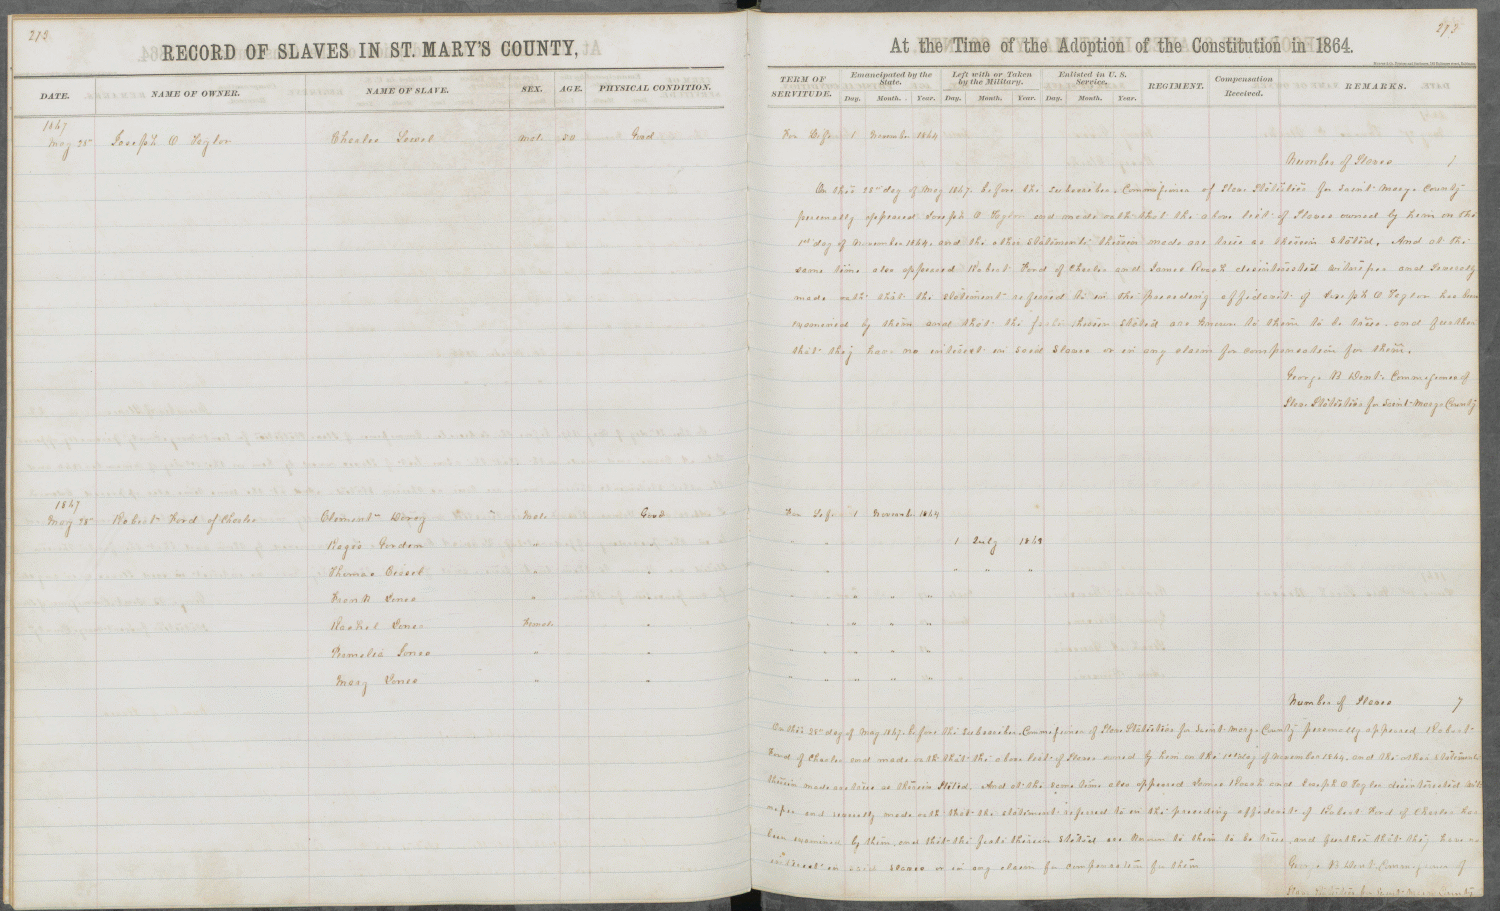 213
RECORD OF SLAVES IN ST. MARY'S COUNTY,
DATE. NAME OF OWNER. NAME OF SLAVE. SEX. AGE. PHYSICAL CONDITION.
1867
May 28" Joseph Taylor Charles Male 50 Good
1867
May 28" Robert Ford of Charles Clement Dorsey Male Good
Gordon " "
Thomas " "
Frank Jones " "
Rachel Jones Female "
Permelia Jones " "
Mary Jones " "
213
At the Time of the Adoption of the Constitution in 1864.
TERM OF SERVITUDE. Emancipated by the State. Left with or Taken by the Military. Enlisted in U. S. Service. REGIMENT. Compensation Received. REMARKS.
Day. Month. Year. Day. Month. Year. Day. Month. Year.
For Life 1 November 1864
Number of Slaves 1
On this 28" day of May 1867. before the Subscriber, Commissioner of Slave Statistics for Saint Mary's County
personally appeared Joseph Taylor and made oath that the above list of Slaves owned by him on the
1st day of November 1864. and the other Statements therein made are true as therein stated. And at the
same time also appeared Robert Ford of Charles and James Roach disinterested witnesses and severally
made oath that the statement referred to in the preceding affidavit of Joseph Taylor has been
examined by them and that the facts therein stated are known to them to be true. and further
that they have no interest in said Slaves or in any claim for compensation for them.
George B Dent Commissioner of
Slave Statistics for Saint Mary's County
For Life 1 November 1864
" " 1 July 1863
" " " " "
" " " " "
" " " " "
" " " " "
" " " " "
Number of Slaves 7
On this 28" day of May 1867. before the Subscriber. Commissioner of Slave Statistics for Saint Mary's County personally appeared Robert
Ford of Charles and made oath that the above list of Slaves owned by him on the 1st day of November 1864. and the other Statements
therein made are true as therein Stated. And at the same time also appeared James Roach and Joseph Taylor disinterested wit-
nesses and severally made oath that the statement referred to in the preceding affidavit of Robert Ford of Charles has
been examined by them. and that the facts therein stated are known to them to be true. and further that they have no
interest in said Slaves or in any claim for compensation for them George B Dent Commissioner of
Slave Statistics for Saint Mary's County